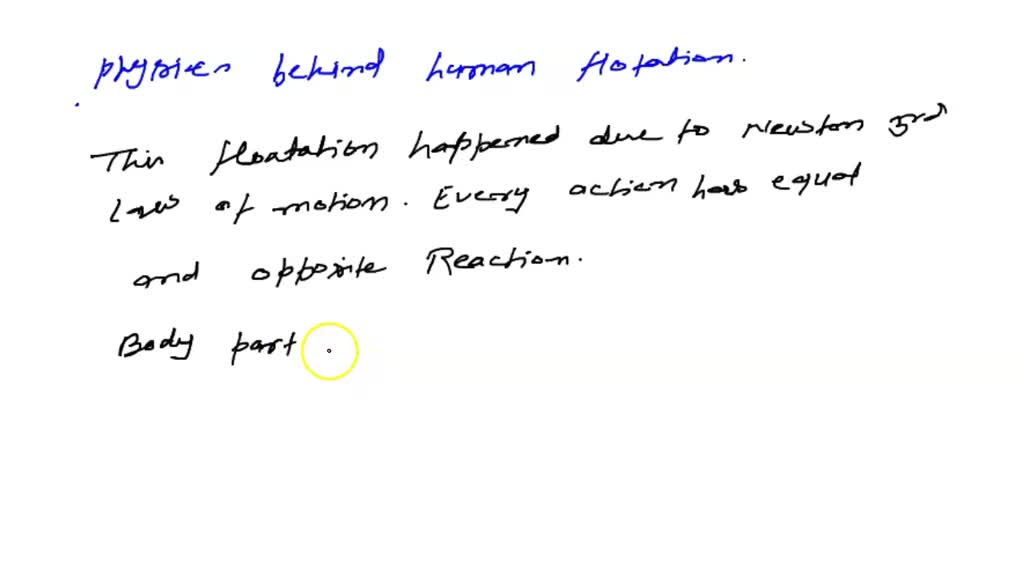 Physics behind human flotation.
This floatation happened due to Newton 3rd
law of motion. Every action has equal
and opposite Reaction.
Body part